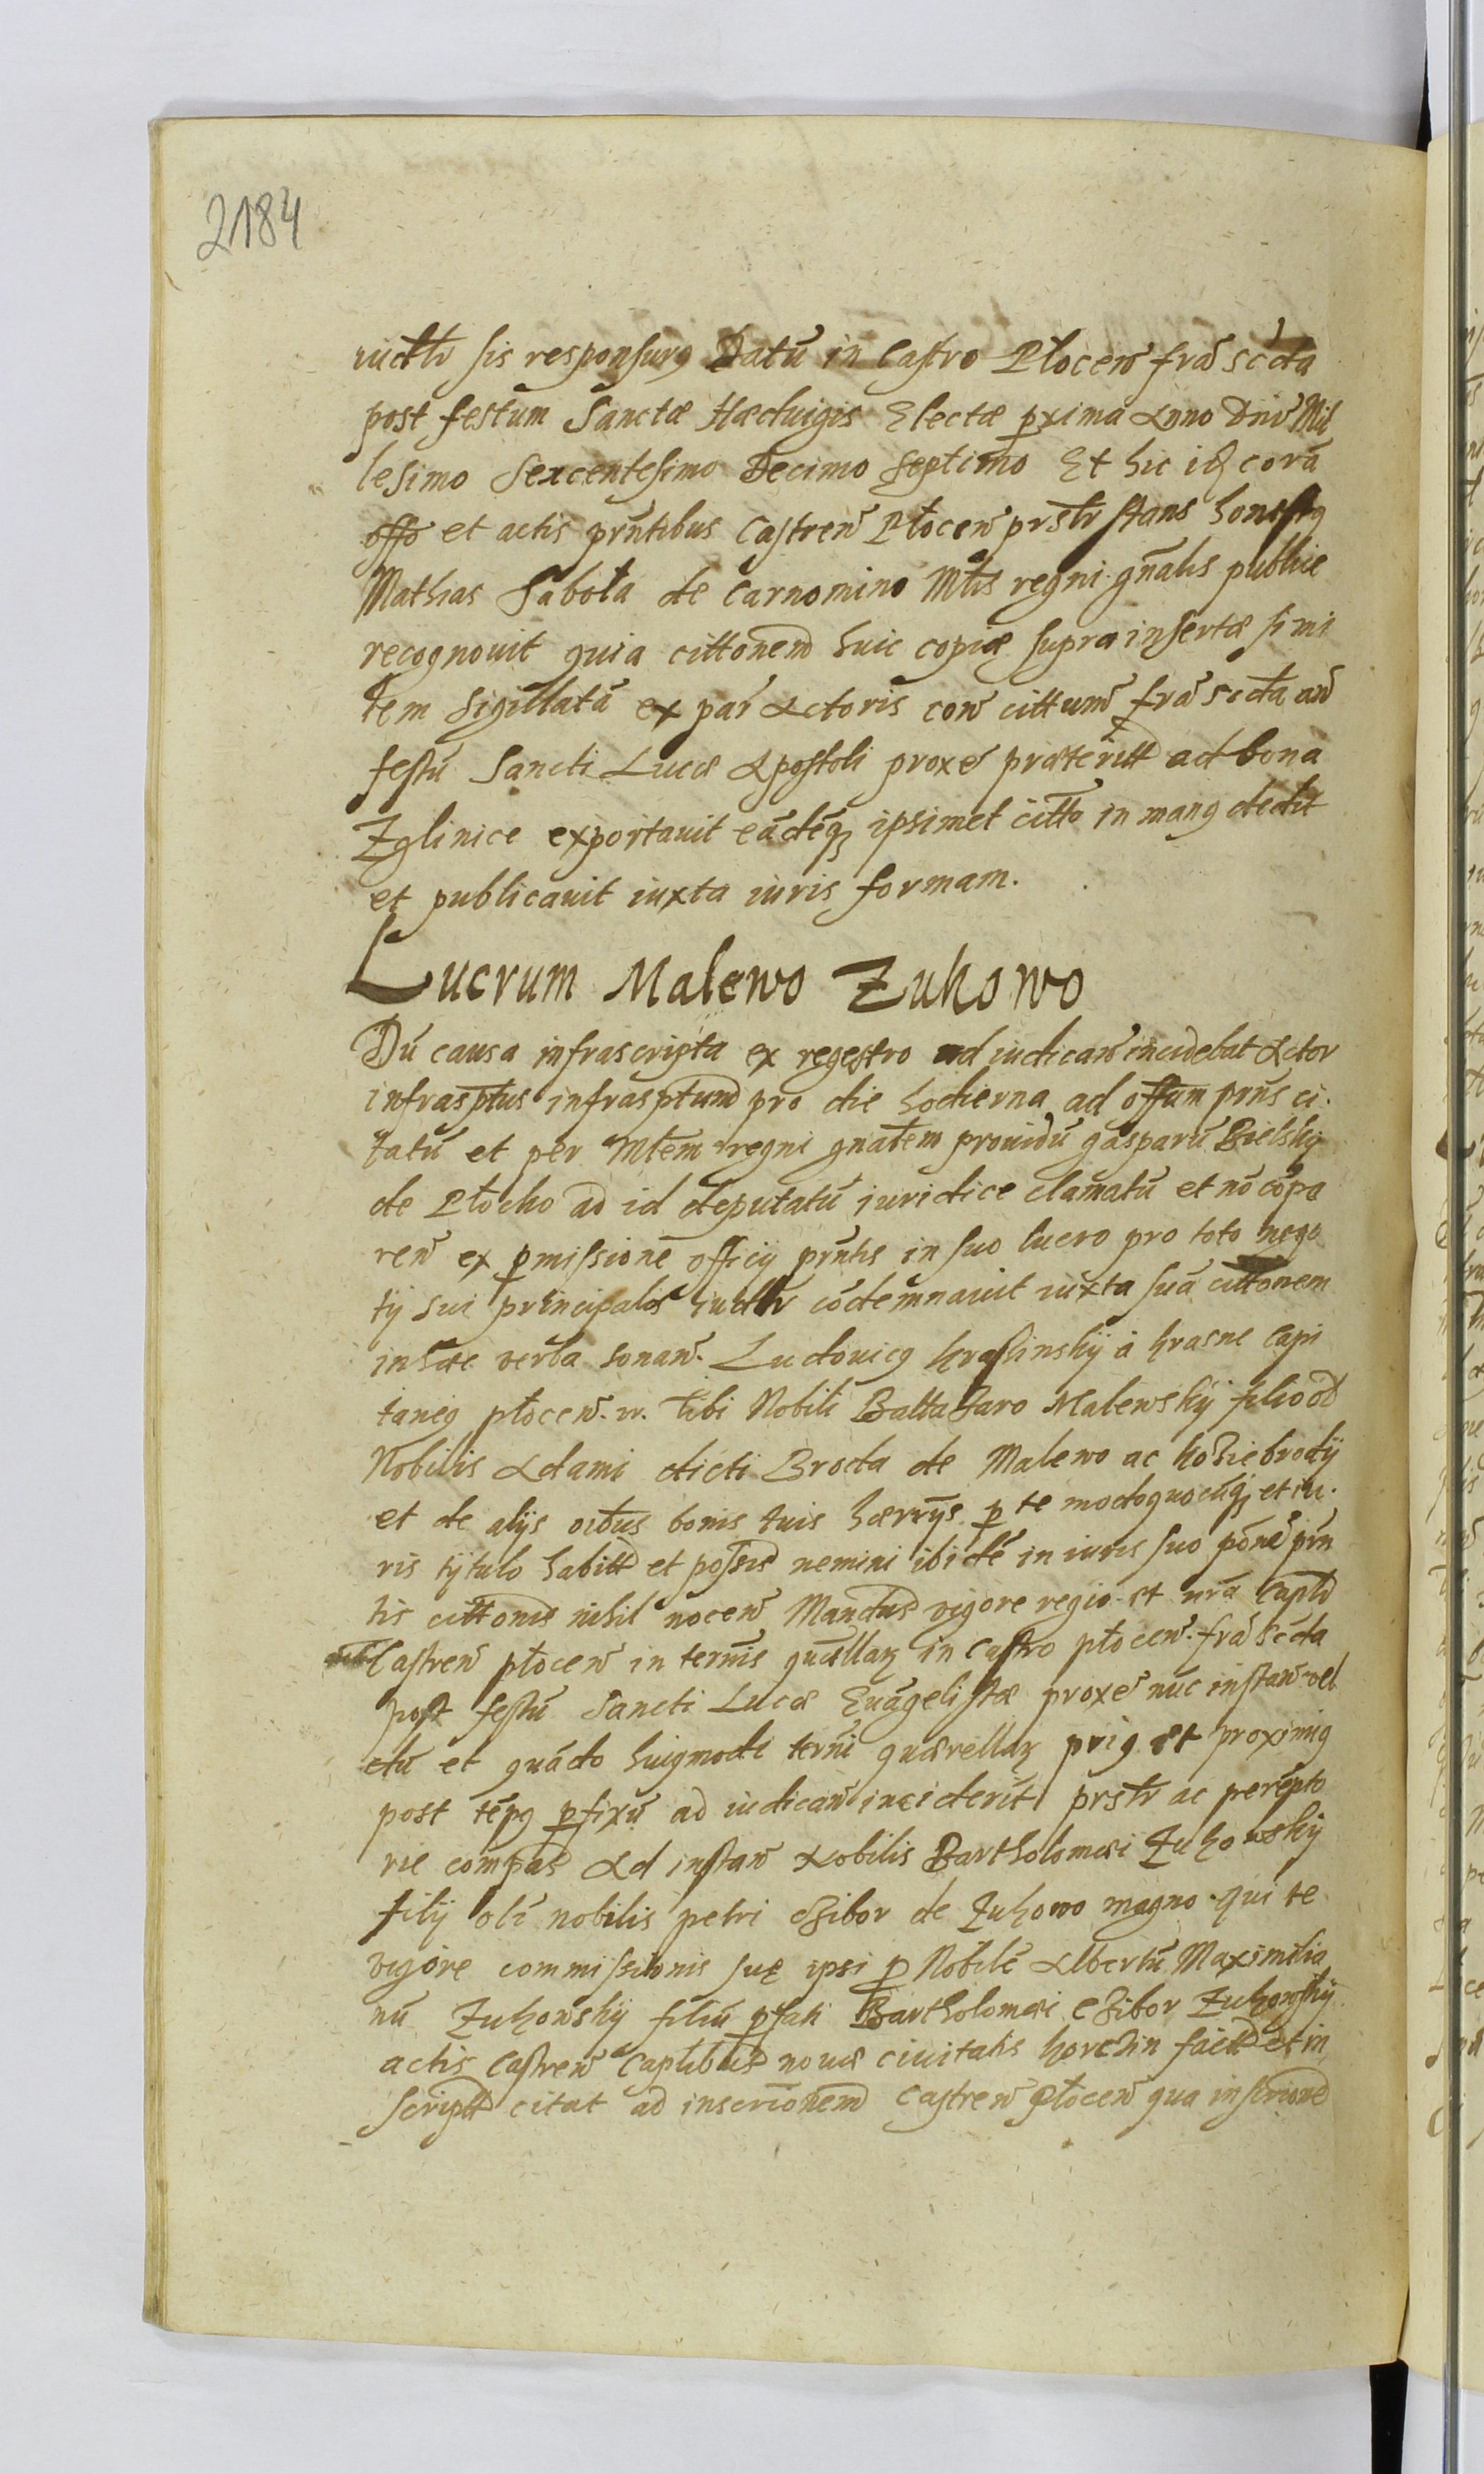 2184
iudtr sis responsurq Datū in Castro Płocen fra sc̄da
post festum Sanctæ Hæduigis Electæ pxima Anno Dni Mil
lesimo Sexcentesimo Decimo Septimo Et hic iq corā
offo et actis prn̄tibus Castren Płocen prstr stans honestq
Mathias Sabota de Carnomino Mtis regni gn̄alis publice
recognouit quia cittonem huic copiæ supra insertæ simi
lem Sigillatā ex par Actoris con cittum fra scd̄a an
festū Sancti Lucæ Apostoli proxe præteritt ad bona
Zglinice exportauit eādēq ipsimet citto in manq dedit
et publicauit iuxta iuris formam.
Lucrum Malewo Zukowo
Dū causa infrascripta ex regestro ad iudican incidebat Actor
infrasptus infrasptum pro die hodierna ad offum prn̄s ci
tatū et per Mtem regni gn̄alem prouidū Gasparū Bielsky
de Płocko ad id deputatū iuridice clamatū et nō cōpa
ren ex pmissione officij prn̄tis in suo lucro pro toto nego
tij sui principalis iudtr cōdemnauit iuxta suā cittonem
in hæc verba sonan. Ludouicq Krasinsky à Krasne Capi
taneq płocen. Tibi Nobili Baltasaro Malewsky filio od
Nobilis Adami dicti Broda de Malewo ac Koziebrody
et de alijs oibus bonis tuis hærrijs p te modoquocūq et iu
ris tytulo habitt et possis nemini ibidē in iuris suo pōne prn̄
tis cittonis nihil nocen Mandus vigore regio et nrā Captli
Castren płocen in terminis quællar in Castro płocen fra scd̄a
post festū Sancti Lucæ Euāgelistæ proxe nūc instan vel
dū et quādo huiqmodi termi quærellar priq et proximiq
post tēpq pfixū ad iudican inciderīt prstr ac perēpto
rie compas Ad instan Nobilis Bartholomæi Zukowsky
filij oli nobilis petri Czibor de Zukowo magno qui te
vigore commissionis suę ipsi p Nobilē Albertū Maximilia
nū Zukowsky filiū pfati Bartholomæi Czibor Zukowsky
actis Castren Captlibus nouæ ciuitatis Korczin factt et in
scriptt citat ad inscrionem Castren Płocen qua inscrione